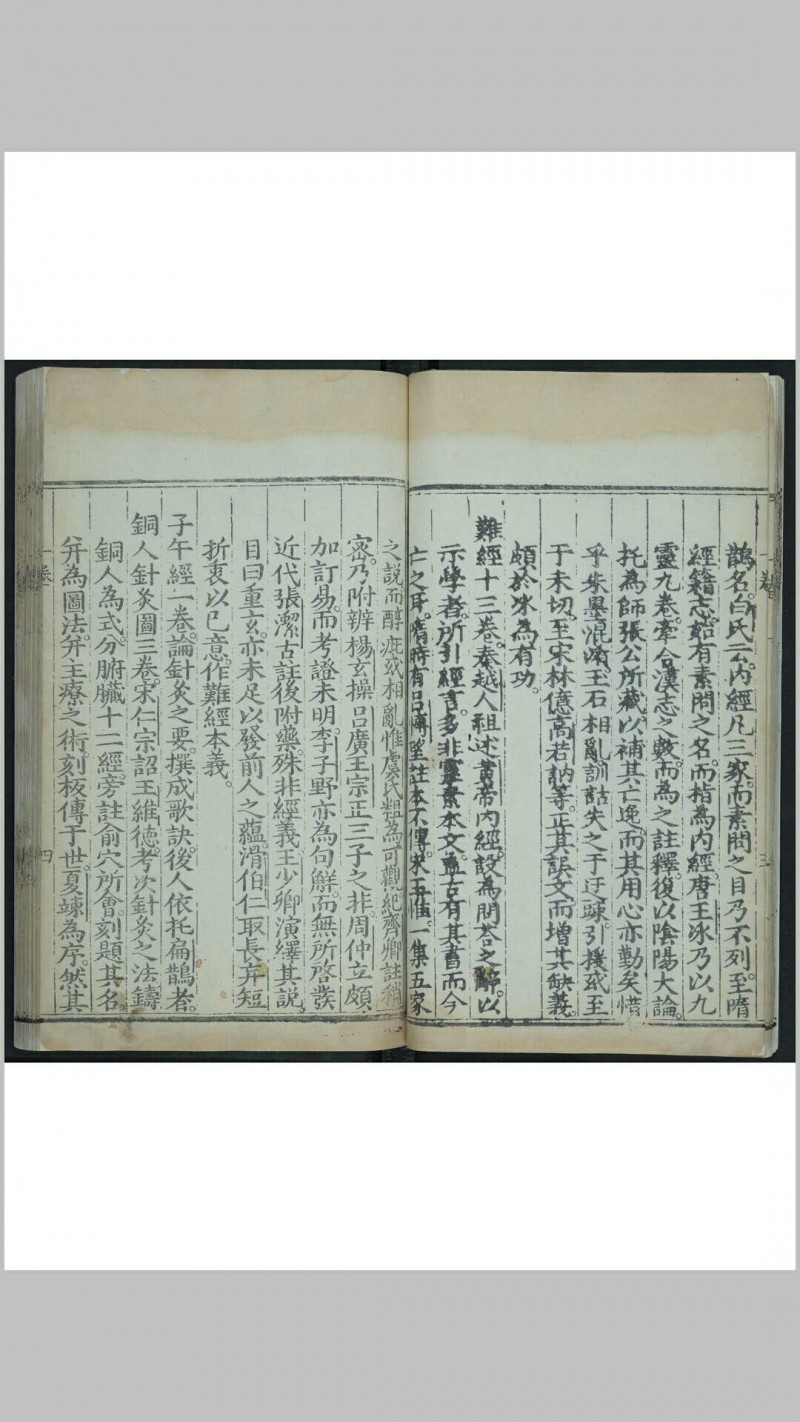 鵲名。白氏云。內經凡三家。而素問之目乃不列。至隋
經籍志。始有素問之名。而指為內經。唐王冰乃以九
靈九卷。牽合漢志之數。而為之註釋。復以陰陽大論。
托為師張公所藏。以補其亡逸。而其用心亦勤矣。惜
乎朱墨混淆。玉石相亂。訓詁失之于迂踈。引援或至
于未切。至宋林億高若訥等。正其誤文。而增其缺義。
頗於冰為有功。
難經十三卷。秦越人祖述黃帝內經。設為問荅之辭。以
示學者。所引經言。多非靈素本文。盖古有其書而今
亡之耳。隋時有呂博望註本不傳。宋王惟一集五家
之說而醇疵或相亂惟虞氏粗為可觀。紀齊卿註稍
密。乃附辨楊玄操呂廣王宗正三子之非。周仲立頗
加訂易。而考證未明。李子野亦為句觧。而無所啓發
近代張潔古註後附藥。殊非經義。王少卿演繹其說。
目曰重玄。亦未足以發前人之蘊。滑伯仁取長弃短
折衷以己意。作難經本義。
子午經一卷。論針灸之要。撰成歌訣。後人依托扁鵲者。
銅人針灸圖三卷。宋仁宗詔王維德。考次針灸之法。鑄
銅人為式。分腑臟十二經。旁註俞穴所會。刻題其名。
并為圖法。并主療之術。刻板傳于世。夏竦為序。然其
一卷
三
四